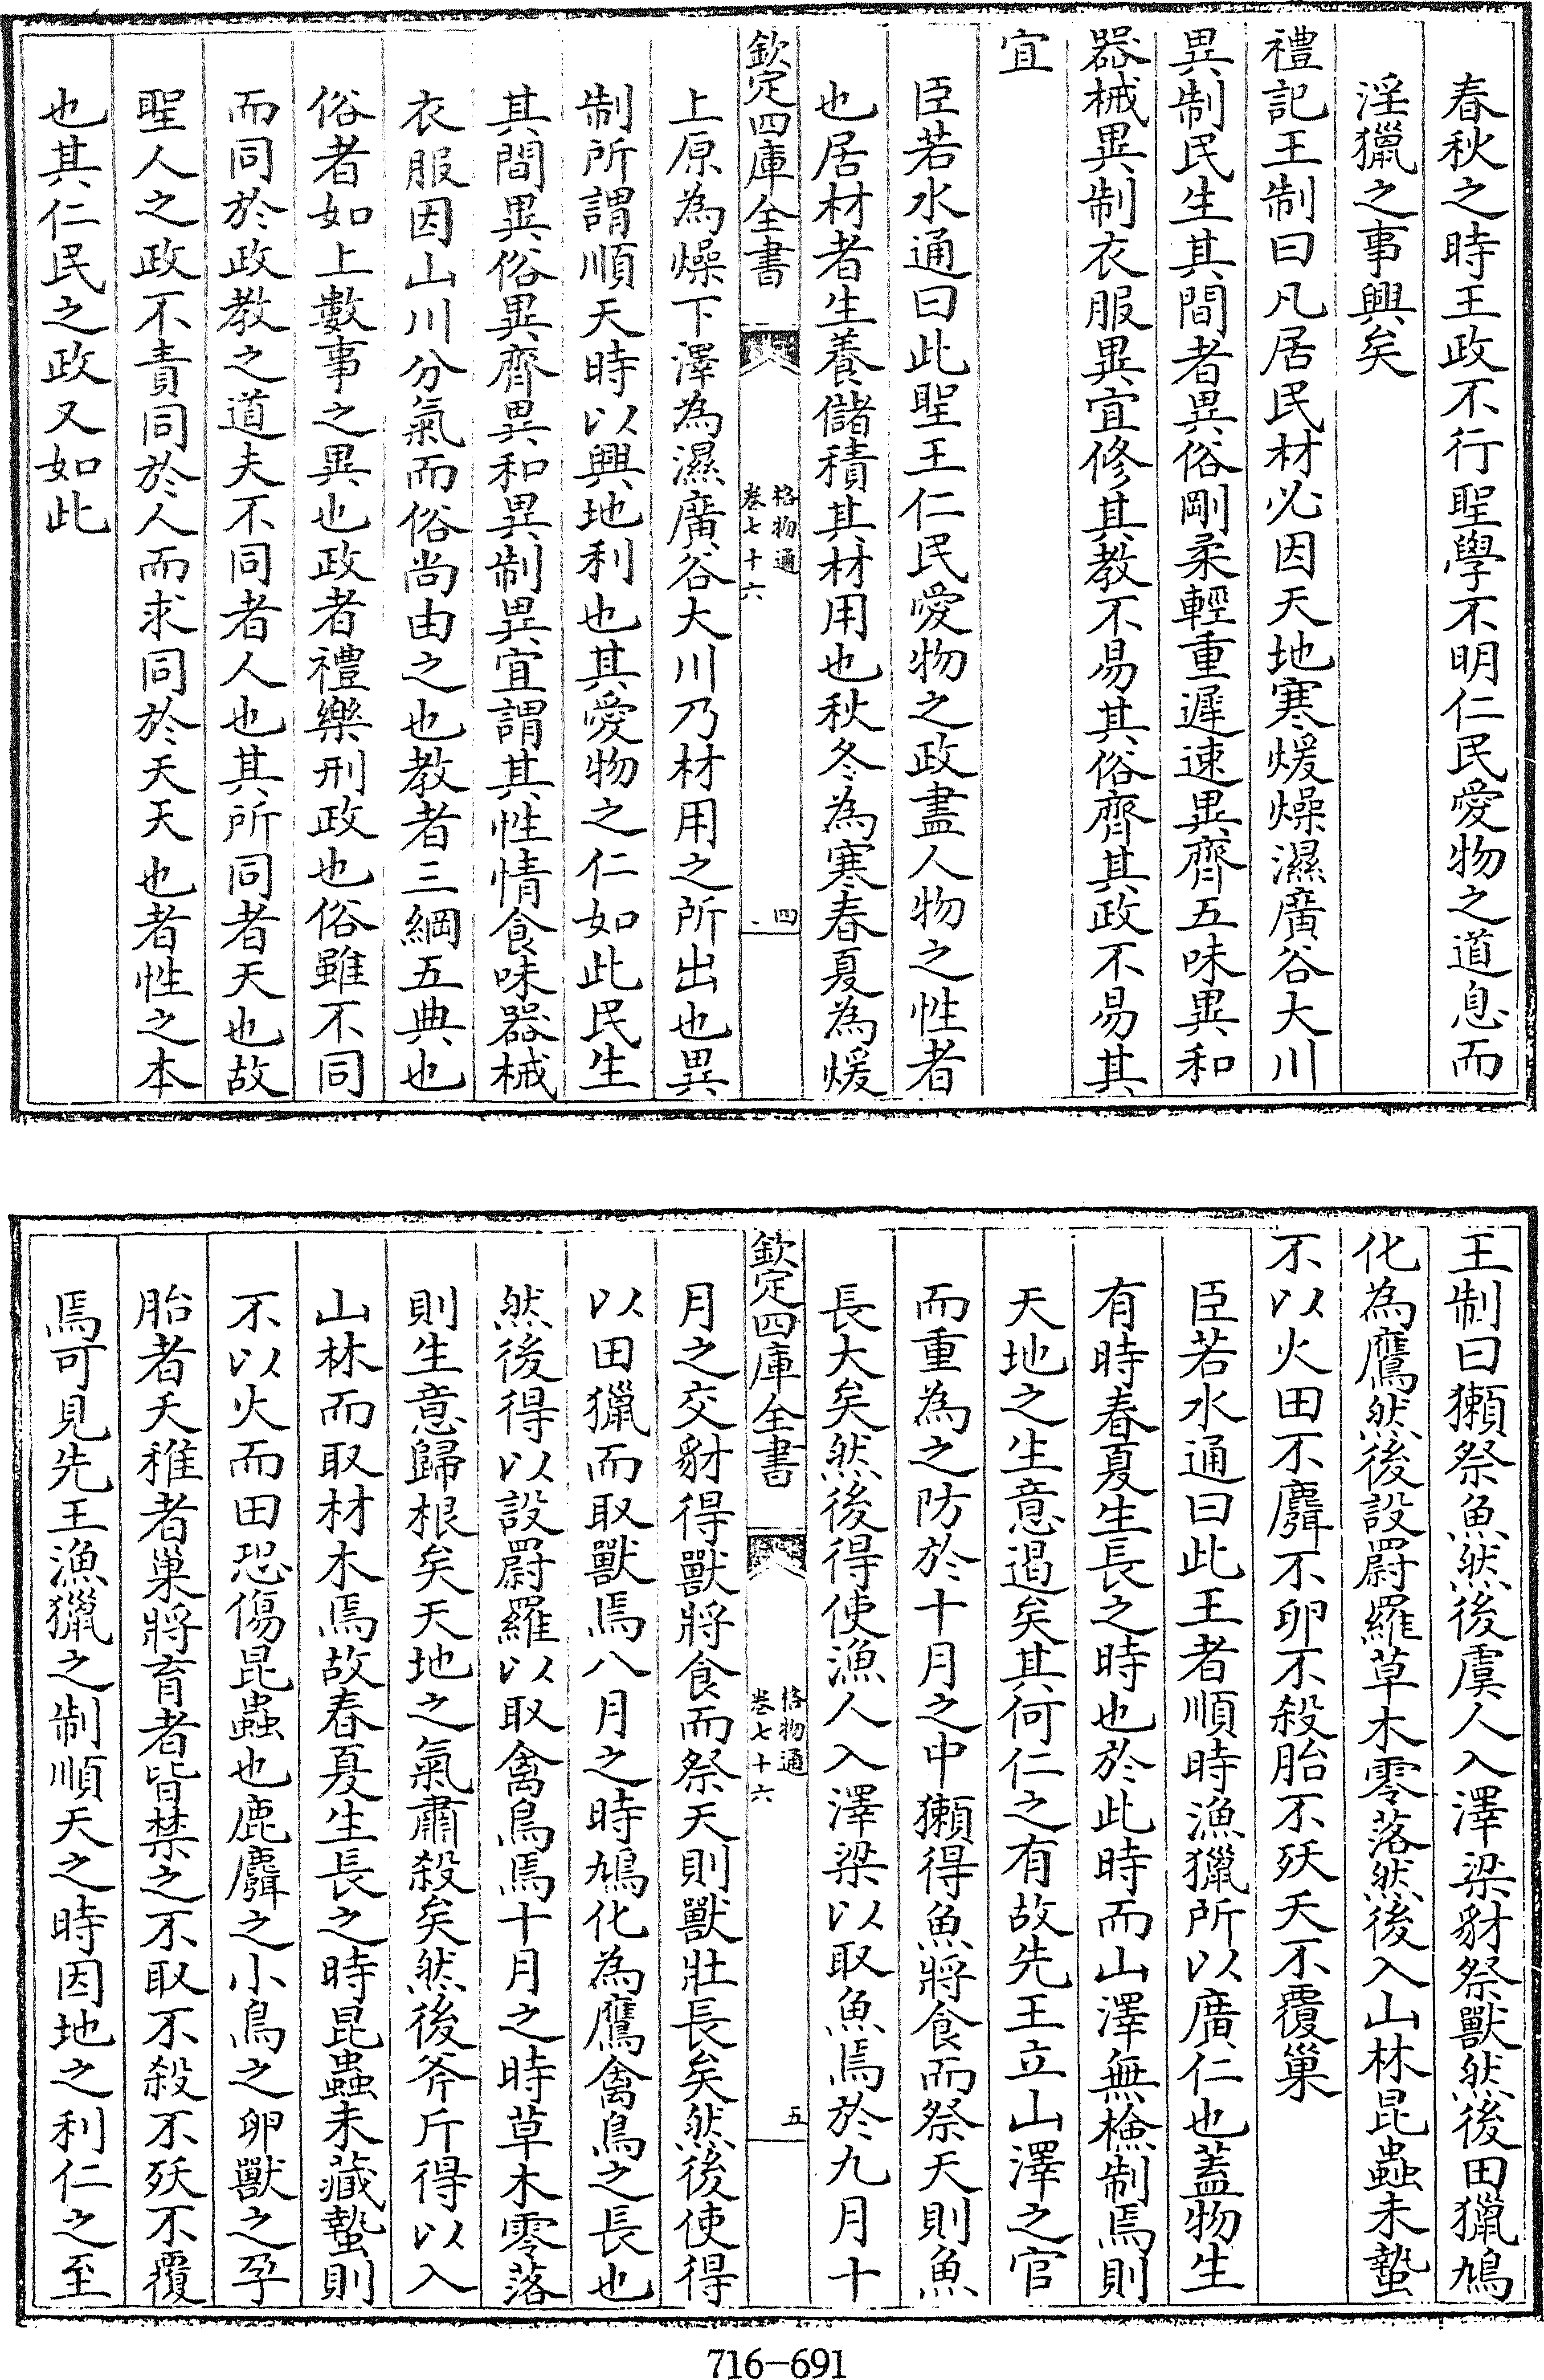 春秋之時王政不行聖學不明仁民愛物之道息而
淫獵之事興矣
禮記王制曰凡居民材必因天地寒煖燥濕廣谷大川
異制民生其間者異俗剛柔輕重遲速異齊五味異和
器械異制衣服異宜修其教不易其俗齊其政不易其
宜
臣若水通曰此聖王仁民愛物之政盡人物之性者
也居材者生養儲積其材用也秋冬為寒春夏為煖
欽定四庫全書
格物通
卷七十六
四
上原為燥下澤為濕廣谷大川乃材用之所出也異
制所謂順天時以興地利也其愛物之仁如此民生
其間異俗異齊異和異制異宜謂其性情食味器械
衣服因山川分氣而俗尚由之也教者三綱五典也
俗者如上數事之異也政者禮樂刑政也俗雖不同
而同於政教之道夫不同者人也其所同者天也故
聖人之政不責同於人而求同於天天也者性之本
也其仁民之政又如此
王制曰獺祭魚然後虞人入澤梁豺祭獸然後田獵鳩
化為鷹然後設罻羅草木零落然後入山林昆蟲未蟄
不以火田不麛不卵不殺胎不殀夭不覆巢
臣若水通曰此王者順時漁獵所以廣仁也蓋物生
有時春夏生長之時也於此時而山澤無檢制焉則
天地之生意遏矣其何仁之有故先王立山澤之官
而重為之防於十月之中獺得魚將食而祭天則魚
長大矣然後得使漁人入澤梁以取魚焉於九月十
欽定四庫全書
格物通
卷七十六
五
月之交豺得獸將食而祭天則獸壯長矣然後使得
以田獵而取獸焉八月之時鳩化為鷹禽鳥之長也
然後得以設罻羅以取禽鳥焉十月之時草木零落
則生意歸根矣天地之氣肅殺矣然後斧斤得以入
山林而取材木焉故春夏生長之時昆蟲未藏蟄則
不以火而田恐傷昆蟲也鹿麛之小鳥之卵獸之孕
胎者夭稚者巢將育者皆禁之不取不殺不殀不覆
焉可見先王漁獵之制順天之時因地之利仁之至
716-691